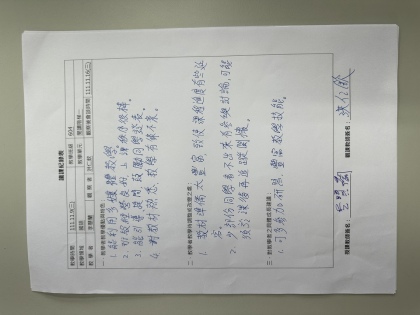 議課紀錄表
教學時間 111.11.9(三) 教學班級 604
教學領域 國語 教學單元 閱讀階梯一
教學者 李慧蘭 觀察者 洪仁欽 觀察後會談時間 111.11.16(三)
一、教學者教學優點與特色：
1. 能利用多媒體教學。
2. 班級經營良好，上課秩序很棒。
3. 能引導提問，鼓勵同學發表。
4. 對教材熟悉，教學有條不紊。
二、教學者教學待調整或改變之處：
1. 教材準備太豐富，致使課程進度有些延
宕。
2. 少部份同學看不出來有參與討論，可能
須於課後再追蹤關懷。
三、對教學者之具體成長建議：
1. 可多參加研習，豐富教學技能。
授課教師簽名： 觀課教師簽名：洪仁欽